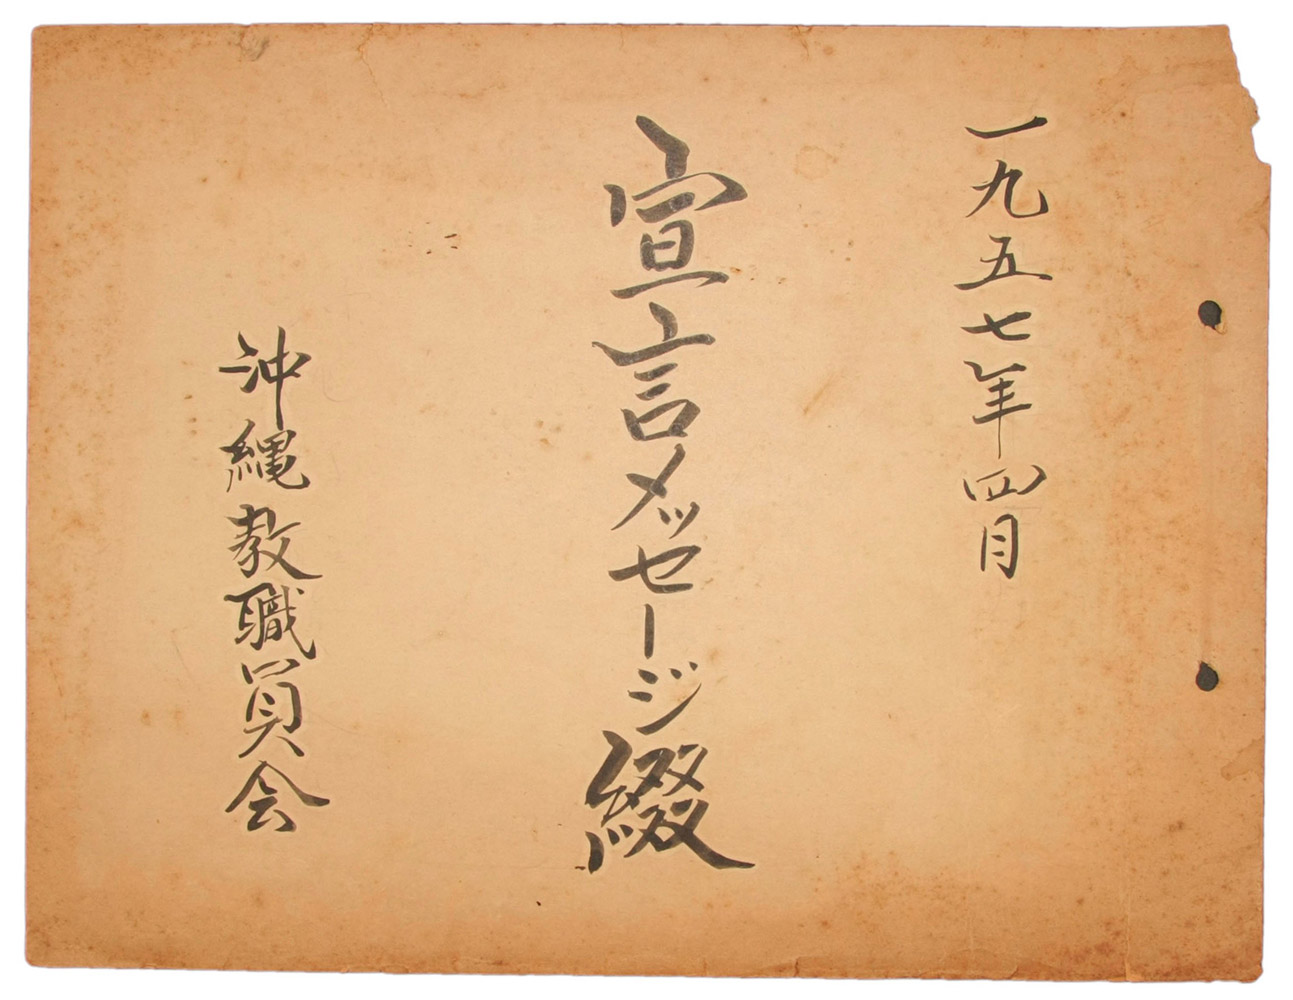 一九五七年四月
宣言メッセージ綴
沖縄教職員会